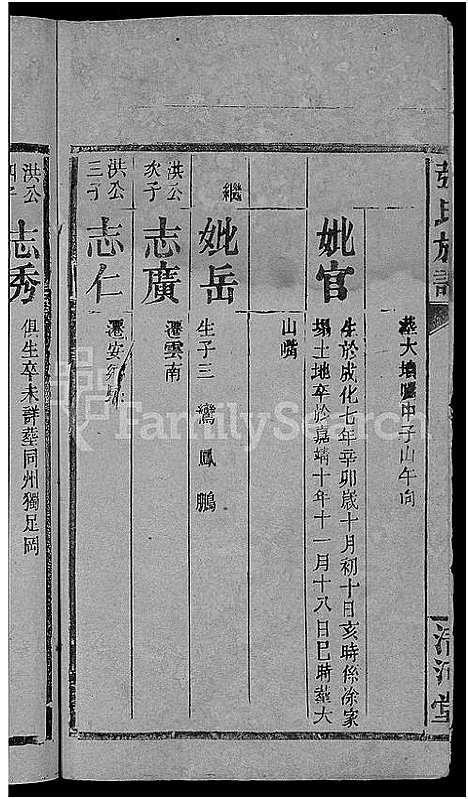 張氏族譜
清河堂
葬大塅嘴中子山午向
妣官
生於成化七年辛卯歲十月初十日亥時係涂家
塌土地卒於嘉靖十年十一月十八日巳時葬大
山嘴
繼
妣岳
生子三 鸞 鳳 鵬
洪公
次子
志廣
遷雲南
洪公
三子
志仁
遷安
洪公
四子
志秀
俱生卒未詳葬同州獨足岡
FamilySearch